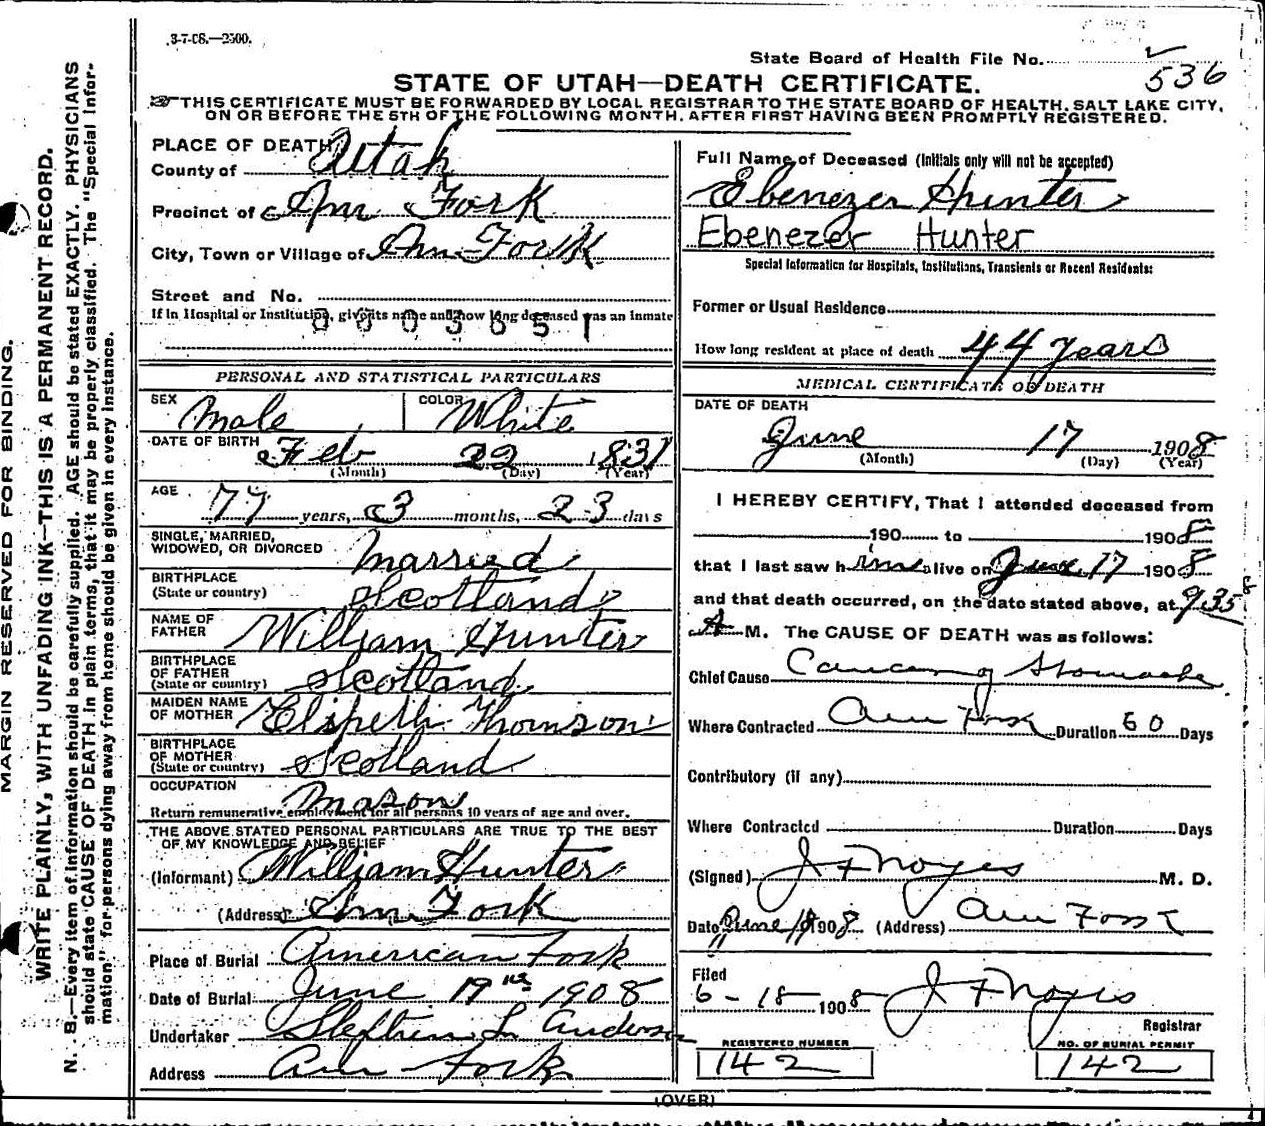 3-7-08.—2500.
State Board of Health File No. 536
STATE OF UTAH—DEATH CERTIFICATE.
THIS CERTIFICATE MUST BE FORWARDED BY LOCAL REGISTRAR TO THE STATE BOARD OF HEALTH, SALT LAKE CITY,
ON OR BEFORE THE 5TH OF THE FOLLOWING MONTH, AFTER FIRST HAVING BEEN PROMPTLY REGISTERED.
MARGIN RESERVED FOR BINDING.
WRITE PLAINLY, WITH UNFADING INK—THIS IS A PERMANENT RECORD.
N. B.—Every item of information should be carefully supplied. AGE should be stated EXACTLY. PHYSICIANS
should state CAUSE OF DEATH in plain terms, that it may be properly classified. The "Special Infor-
mation" for persons dying away from home should be given in every instance.
PLACE OF DEATH
County of Utah
Precinct of Am Fork
City, Town or Village of Am Fork
Street and No.
If in Hospital or Institution, give its name and how long deceased was an inmate
PERSONAL AND STATISTICAL PARTICULARS
SEX Male COLOR White
DATE OF BIRTH Feb 22 1831
(Month) (Day) (Year)
AGE 77 years, 3 months, 23 days
SINGLE, MARRIED,
WIDOWED, OR DIVORCED Married
BIRTHPLACE
(State or country) Scotland
NAME OF
FATHER William Hunter
BIRTHPLACE
OF FATHER
(State or country) Scotland
MAIDEN NAME
OF MOTHER Elspeth Thomson
BIRTHPLACE
OF MOTHER
(State or country) Scotland
OCCUPATION Mason
Return remunerative employment for all persons 10 years of age and over.
THE ABOVE STATED PERSONAL PARTICULARS ARE TRUE TO THE BEST
OF MY KNOWLEDGE AND BELIEF
(Informant) William Hunter
(Address) Am Fork
Place of Burial American Fork
Date of Burial June 19th 1908
Undertaker Stephen L Anderson
Address Am Fork
Full Name of Deceased (Initials only will not be accepted)
Ebenezer Hunter
Ebenezer Hunter
Special Information for Hospitals, Institutions, Transients or Recent Residents:
Former or Usual Residence
How long resident at place of death 44 years
MEDICAL CERTIFICATE OF DEATH
DATE OF DEATH
June 17 1908
(Month) (Day) (Year)
I HEREBY CERTIFY, That I attended deceased from
190 to 1908
that I last saw him alive on June 17 1908
and that death occurred, on the date stated above, at 9.35
A M. The CAUSE OF DEATH was as follows:
Chief Cause Cancer of Stomache
Where Contracted Am Fork Duration 60 Days
Contributory (if any)
Where Contracted Duration Days
(Signed) J F Noyes M. D.
Date June 18 1908 (Address) Am Fork
Filed
6-18 1908 J F Noyes
Registrar
REGISTERED NUMBER NO. OF BURIAL PERMIT
142 142
(OVER)